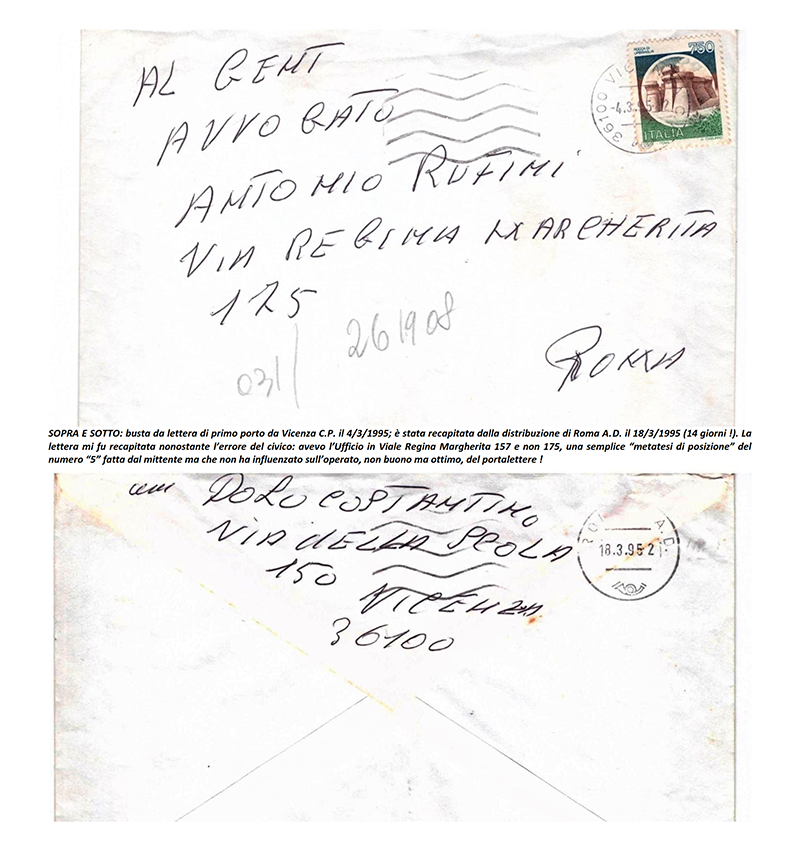 AL GENT
AVVOCATO
ANTONIO RUFINI
VIA REGINA MARGHERITA
175
ROMA
031/ 261908
ROCCA DI URBISAGLIA
750
ITALIA
36100 VIC
-4.3.95
SOPRA E SOTTO: busta da lettera di primo porto da Vicenza C.P. il 4/3/1995; è stata recapitata dalla distribuzione di Roma A.D. il 18/3/1995 (14 giorni !). La
lettera mi fu recapitata nonostante l’errore del civico: avevo l’Ufficio in Viale Regina Margherita 157 e non 175, una semplice “metatesi di posizione” del
numero “5” fatta dal mittente ma che non ha influenzato sull’operato, non buono ma ottimo, del portalettere !
DOLO COSTANTINO
VIA DELLA SCOLA
150 VICENZA
36100
RO A.D.
18.3.95 2